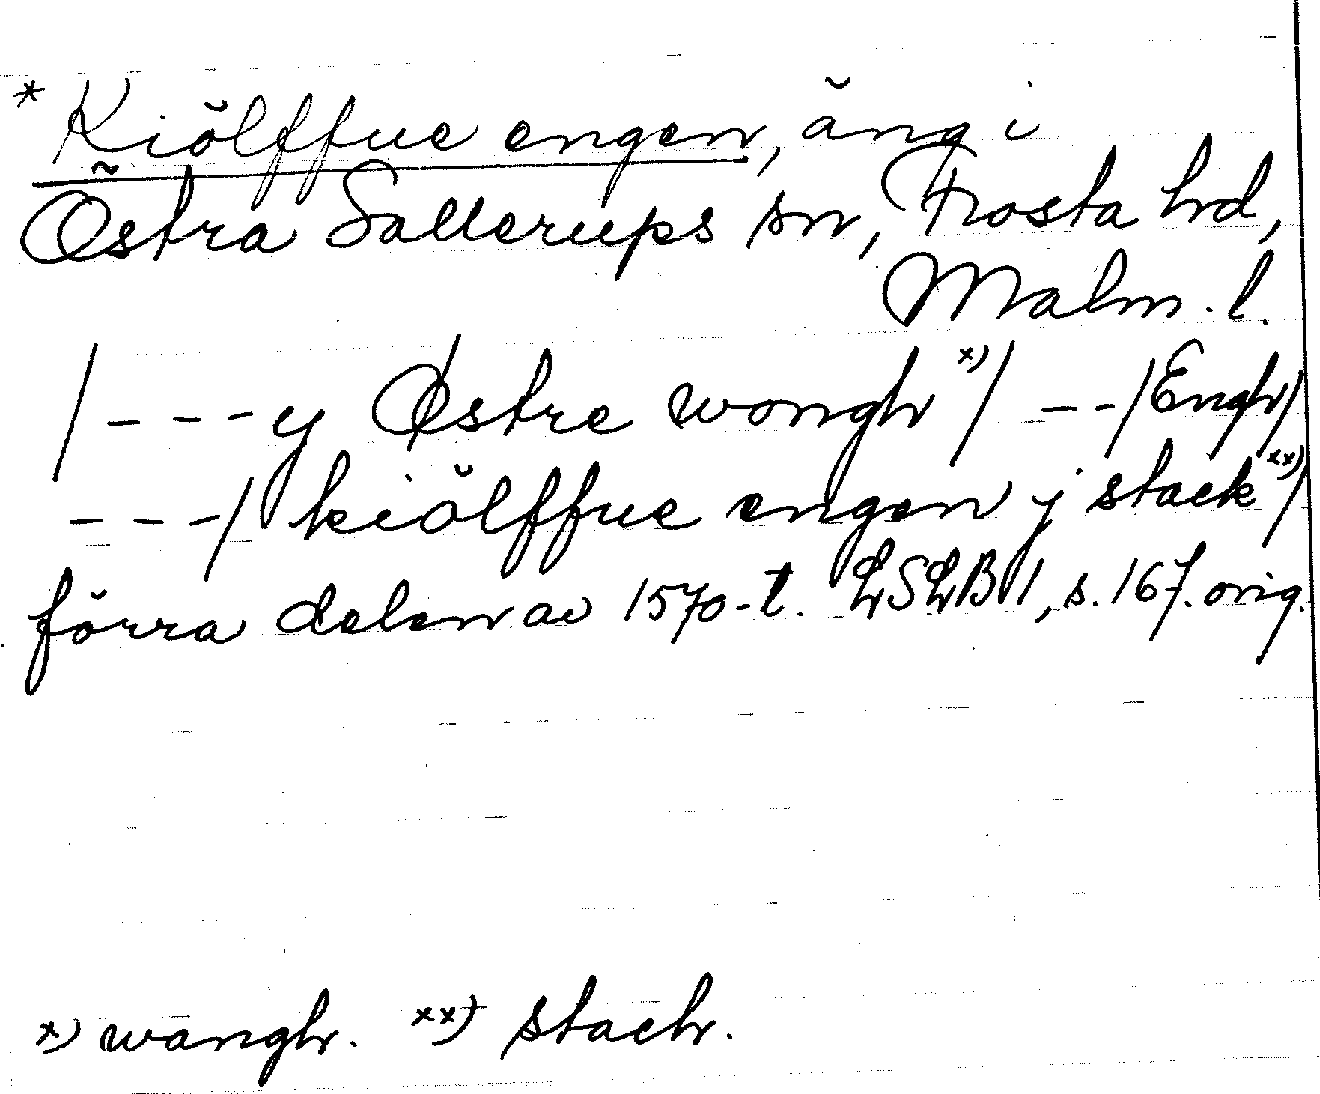 * Kiölffue engen, äng i
Östra Sallerups sn, Frosta hd,
Malm. l.
/---y Østre wongh x)/ --/Engh/
---/ kiölffue engen j stack xx)/
förra delen av 1570-t. LSLB 1, s. 167. orig.
x) wangh. xx) stach.